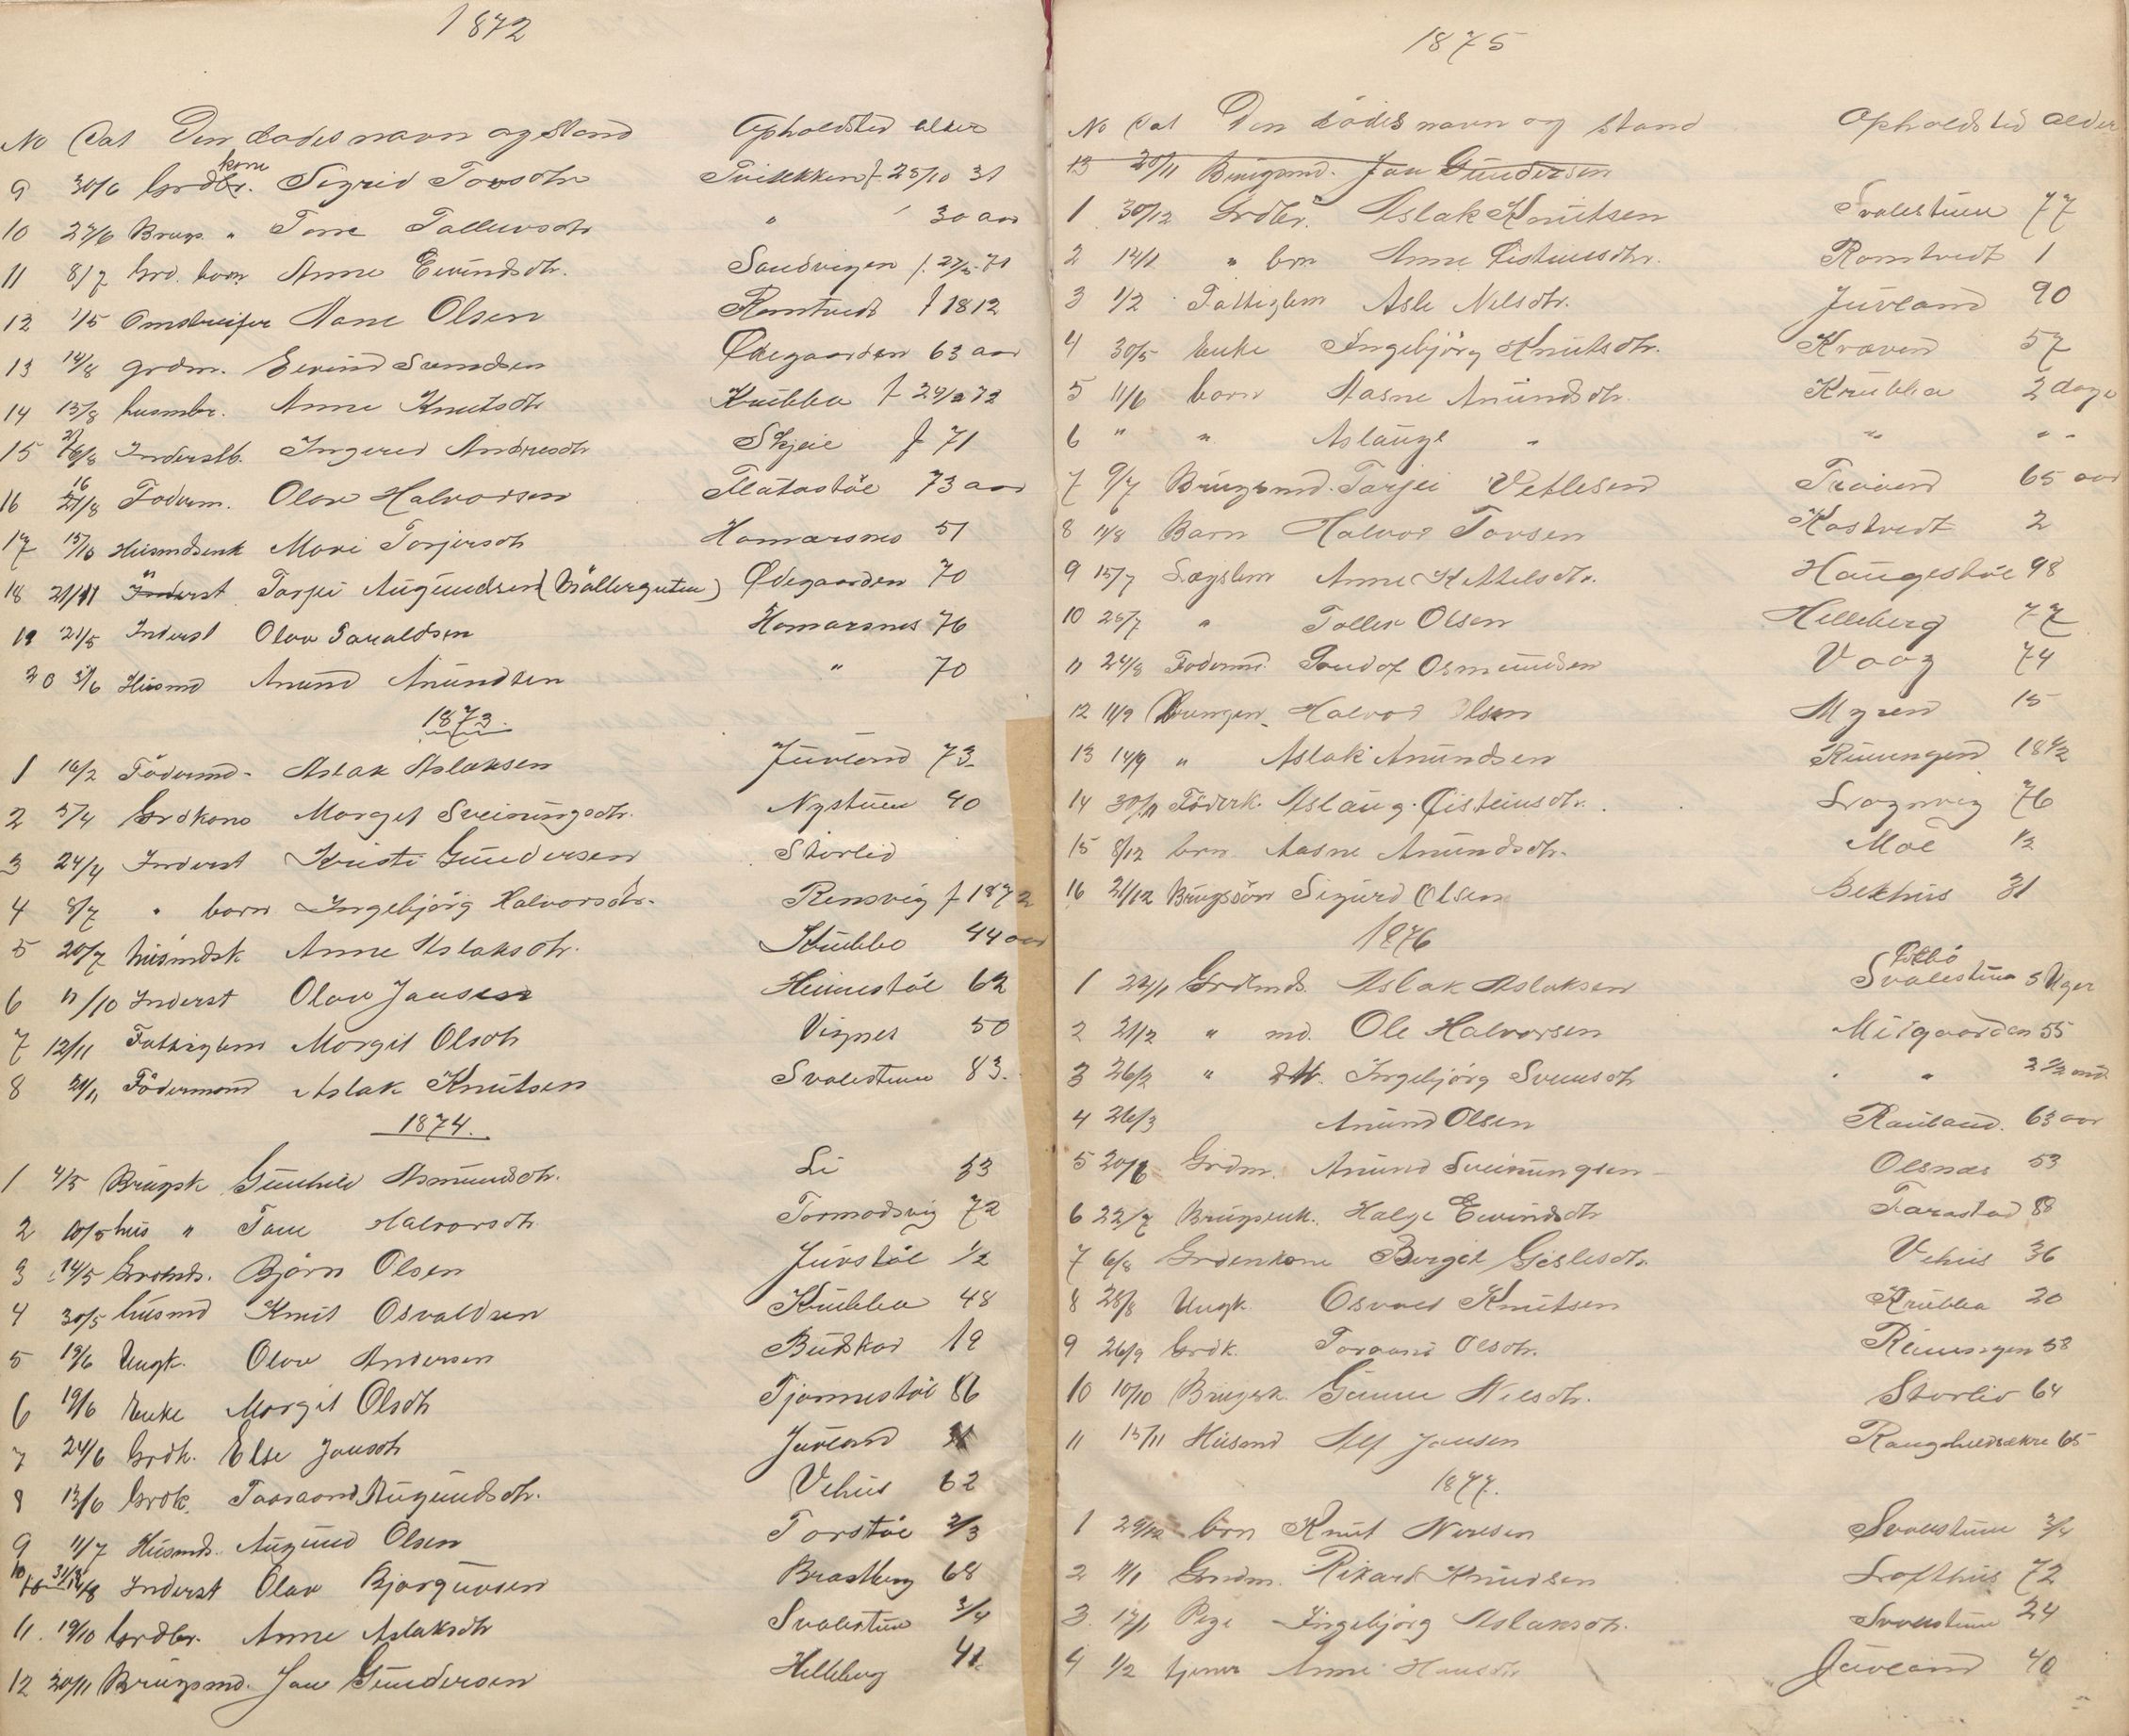 1872
No Dat Den dødes navn og stand Opholdsted alder
9 30/6 Grdbr. kone Sigrid Tovsdtr f. 25/10 31
10 27/6 Brugs. " Tone Tollevsdtr " 30 aar
11 8/7 Grd. barn Anne Eivindsdtr. Sandvigen f. 27/2-71
12 1/5 Omstreifer Olsen Romtvedt f 1812
13 14/8 grdm. Eivind Svendsen Ødegaarden 63 aar
14 13/8 husmbr. Anne Knutsdtr Krubba f 29/2 72
15 Inderstb. Ingered Andresdtr Skjeie f 71
16 16/8 Foderm. Olav Halvorsen Flatastöl 73 aar
17 15/10 Husmdsenk Mari Torjersdtr Hamarsnes 51
18 21/11 Inderst Tarjei Augundsen (Möllerguten) Ødegaarden 70
19 21/5 Inderst Olav Haraldsen Hamarsnes 76
20 3/6 Husmd Anund Anundsen " 70
1873.
1 16/2 Födermd. Aslak Aslaksen Juvland 73
2 5/4 Grdkone Margit Sveinungsdtr. Nystuen 40
3 24/4 Inderst Kristi Gundersen Storlid
4 8/7 " barn Ingebjörg Halvorsdtr. Rensvig f 1872
5 20/7 husmdsk Anne Aslaksdtr. Krubba 44 aar
6 11/10 Inderst Olav Jansen Heimestöl 62
7 12/11 Fattiglem Margit Olsdtr Vignes 50
8 21/11 Födermand Aslak Knutsen Svalestuen 83.
1874.
1 4/5 Brugsk Gunhild Asmundsdtr. Li 53
2 10/5 hus " Tone Halvorsdtr Tormodsvig 72
3 14/5 Grdmds. Björn Olsen Juvstöl 1/2
4 30/5 husmd Knut Osvaldsen Krubba 48
5 19/6 Ungk. Olav Andersen Budskar 19
6 19/6 Enke Margit Olsdtr Tjönnestöl 86
7 24/6 Grdk. Else Jonsdtr Juvland
8 13/6 Grdk. Taaraand Augundsdtr. Vehus 62
9 11/7 Husmds. Augund Olsen Torstöl 2/3
10 Inderst Olav Bjorgufsen Brastberg 68
11. 19/10 Grdbr. Anne Aslaksdtr Svalestuen 3/4
12 20/11 Brugsmd. Jan Gundersen Helleberg 41
1875
No Dat Den dödes navn og stand Opholdsted Alder
13 20/11 Brugsmd. Jan Gundersen
1 30/12 Grdbr. Aslak Knutsen Svalestuen 77
2 12/1 " brn Anne Eisteinsdtr. Romtvedt 1
3 1/2 Fattiglem Asle Nilsdtr. Juvland 90
4 30/5 Enke Ingebjörg Knutsdtr. Kraven 57
5 11/6 barn Aasne Anundsdtr. Krubba 2 dage
6 " " Aslaug " " " "
7 9/7 Brugsmd. Tarjei Vetlesen Traaen 65 aar
8 11/8 Barn Halvor Tovsen Kostvedt 2
9 15/7 Lægslem Anne Kittelsdtr. Haugestöl 98
10 25/7 " Tollef Olsen Helleberg 77
11 24/8 Fodermd. Rondof Osmundsen Vaag 74
12 11/9 Drengen Halvor Olsen Myren 15
13 14/9 " Aslak Anundsen Ruungen 18 1/2
14 30/11 Föderk. Aslaug Eisteinsdtr. Lognvig 76
15 8/12 brn Aasne Anundsdtr. Moe 1/2
16 21/12 Brugssön Sigurd Olsen Bekhus 31
1876
1 22/1 Grdmds. Aslak Aslaksen Svalestuen 5 Uger
2 21/2 " md. Ole Halvorsen Midgaarden 55
3 26/2 " dtr. Ingebjörg Svensdtr " " 2 1/2 md
4 26/3 Anund Olsen Rauland. 63 aar
5 20/6 Grdm. Anund Sveinungsen Olsnes 53
6 22/7 Brugsenk. Helge Eivindsdtr Farastad 88
7 6/8 Grdenkone Bergit Gislesdtr. Vehus 36
8 28/8 Ungk. Osvald Knutsen Krubba 20
9 26/9 Grdk. Toraand Olsdtr. Ruungen 58
10 10/10 Brugsk. Gunne Nilsdtr. Storlid 64
11 15/11 Husmd Alf Jansen Rangshuldsækre 65
1877.
1 29/12 brn Knut Nirisen Svalestuen 3/4
2 11/1 Grndm. Rikard Knudsen Lofthus 72
3 17/1 Pige Ingebjörg Aslaksdtr. Svalestuen 24
4 1/2 tjener Anne Hansdtr Juvland 40